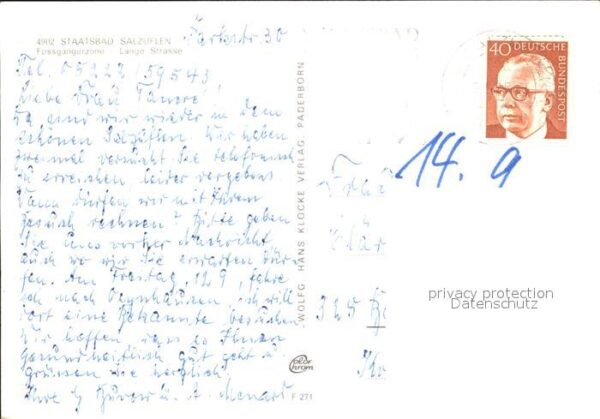 4902 STAATSBAD SALZUFLEN
Fussgängerzone Lange Strasse
Parkstr. 30
Tel. 05222/59543
Liebe Frau
Da sind wir wieder in dem
schönen Salzuflen. Wir haben
zweimal versucht Sie telefonisch
zu erreichen, leider vergebens.
Wann dürfen wir mit Ihrem
Besuch rechnen? Bitte geben
Sie uns vorher Nachricht
auch wo wir Sie erwarten dür-
fen. Am Freitag, 12.9, fahre
ich nach Oeynhausen, ich will
dort eine Bekannte besuchen
Wir hoffen, dass es Ihnen
Gesundheitlich gut geht u
grüssen Sie herzlich
Ihre
WOLFG. HANS KLOCKE VERLAG PADERBORN
color chrom
F 271
40 DEUTSCHE
BUNDESPOST
14.9
325
privacy protection
Datenschutz